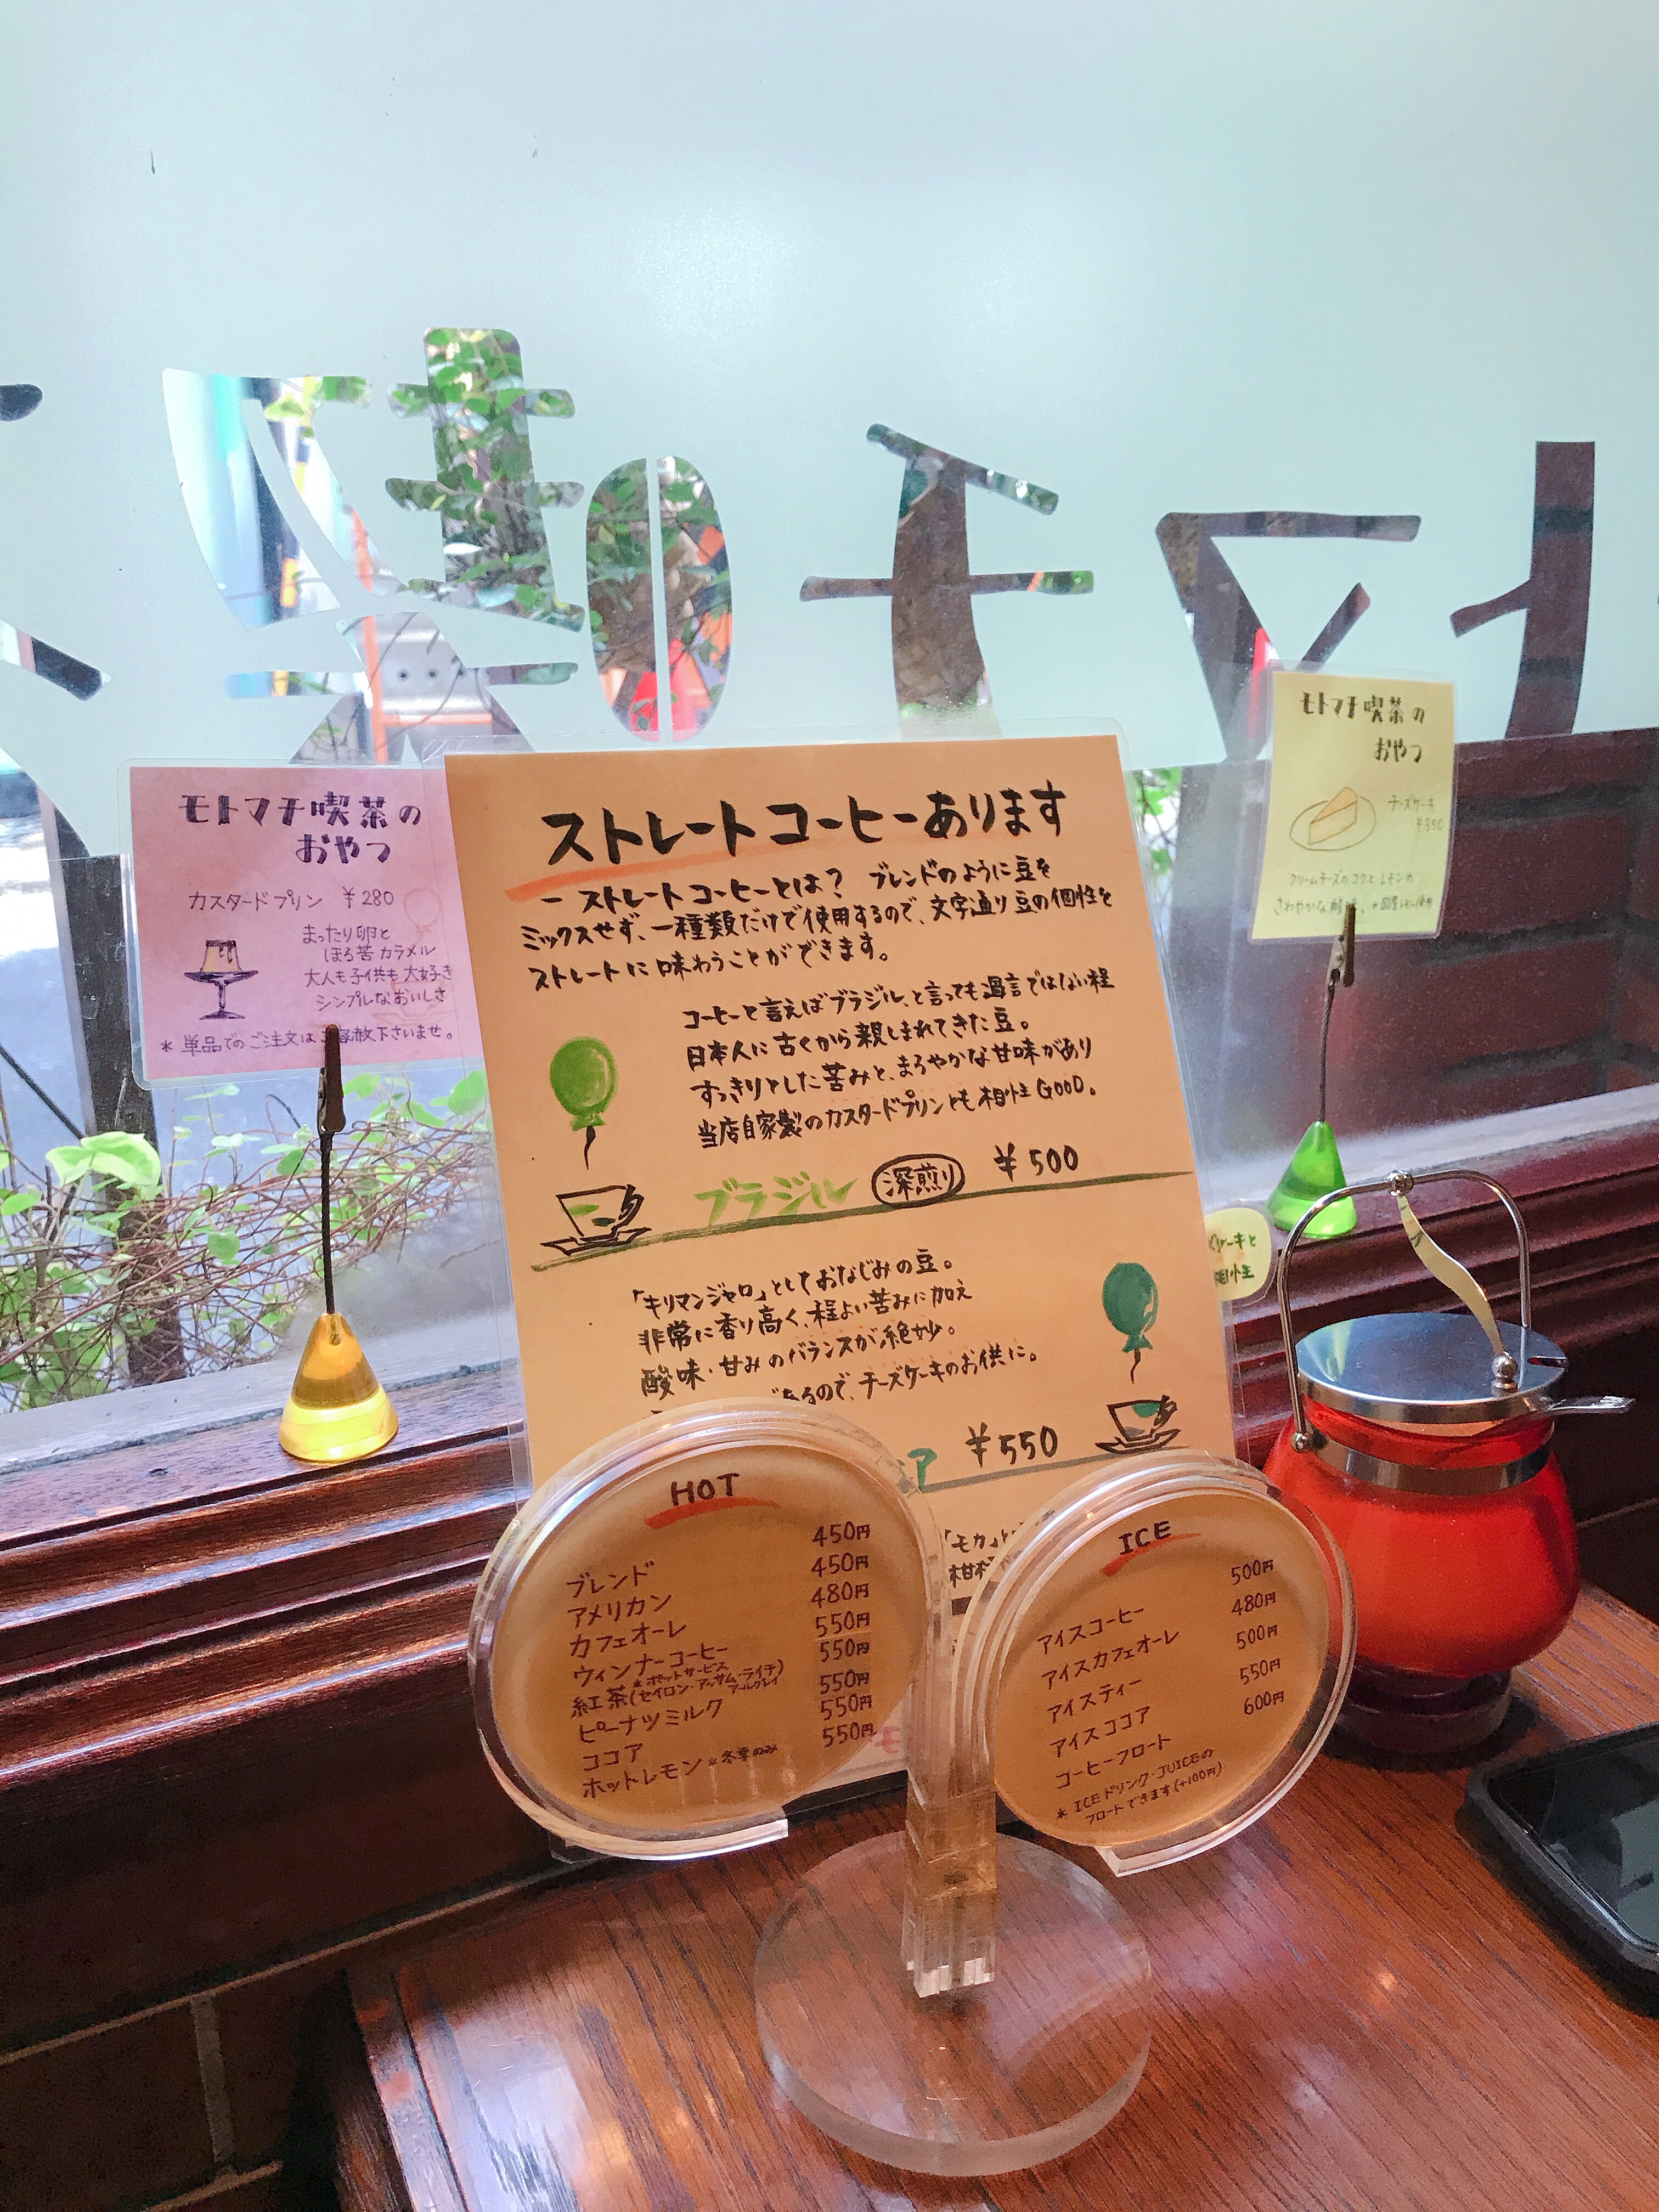 モトマチ喫茶の
おやつ
カスタードプリン ¥280
まったり卵と
ほろ苦カラメル
大人も子供も大好き
シンプルなおいしさ
*単品でのご注文はご容赦下さいませ。
ストレートコーヒーあります
ーストレートコーヒーとは? ブレンドのように豆を
ミックスせず、一種類だけで使用するので、文字通り豆の個性を
ストレートに味わうことができます。
コーヒーと言えばブラジル、と言っても過言ではない程
日本人に古くから親しまれてきた豆。
すっきりとした苦みと、まろやかな甘味があり
当店自家製のカスタードプリンとも相性GOOD。
ブラジル 深煎り ¥500
「キリマンジャロ」としておなじみの豆。
非常に香り高く、程よい苦みに加え
酸味・甘みのバランスが絶妙。
あるので、チーズケーキのお供に。
ア ¥550
「モカ」と
柑
モトマチ喫茶の
おやつ
チーズケーキ
¥350
クリームチーズのコクとレモンの
さわやかな酸味。
ケーキと
相性
HOT
ブレンド 450円
アメリカン 450円
カフェオーレ 480円
ウィンナーコーヒー 550円
*ポットサービス
紅茶(セイロン・アッサム・ライチ 550円
アールグレイ)
ピーナツミルク 550円
ココア 550円
ホットレモン*冬季のみ 550円
ICE
アイスコーヒー 500円
アイスカフェオーレ 480円
アイスティー 500円
アイスココア 550円
コーヒーフロート 600円
*ICEドリンク・JUICEの
フロートできます(+100円)